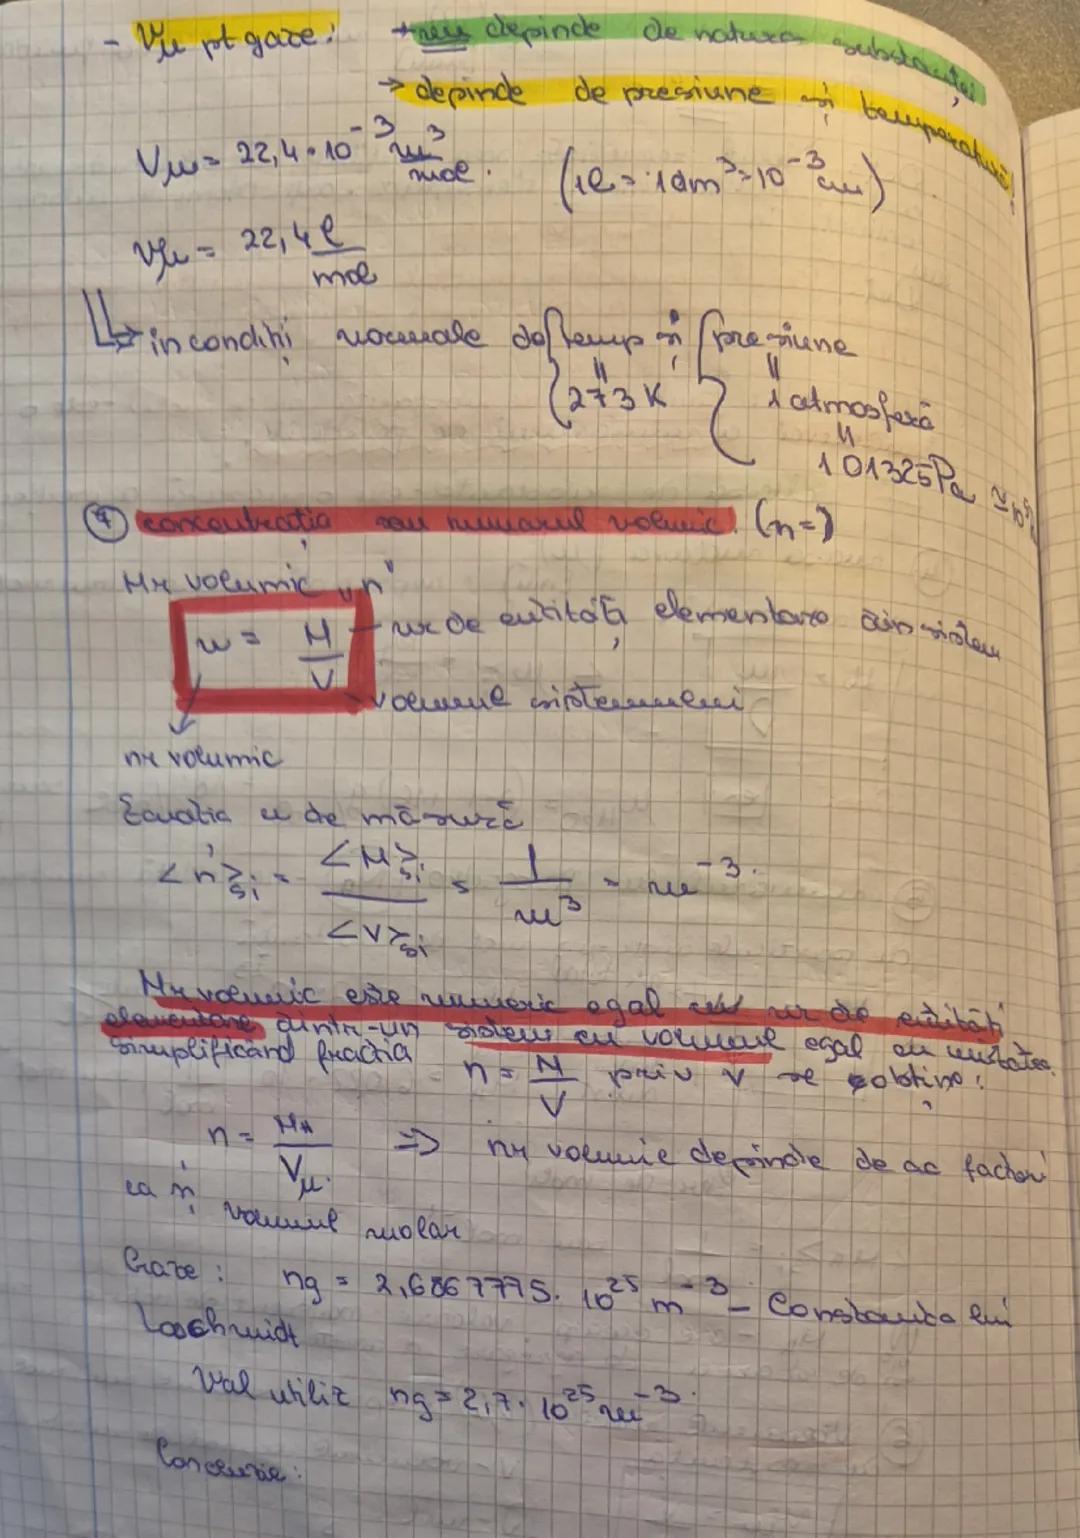 - Vμ pt gaze: → nu depinde de natura substanței
→ depinde de presiune și temperatură!
Vμ = 22,4·10⁻³ m³/mol. (1l = 1dm³ = 10⁻³ m)
Vμ = 22,4 l/mol
în condiții normale de temp și presiune
273 K 1 atmosferă
101325 Pa ≃ 10⁵
④ concentrația sau numărul volumic. (n=)
Nr volumic „n"
n = N/V – nr de entități elementare din sistem
volumul sistemului
nr volumic
Ecuația u de măsură
<n>si = <N>si/<V>si = 1/m³ = m⁻³.
Nr volumic este numeric egal cu nr de entități
elementare dintr-un sistem cu volumul egal cu unitatea.
simplificând fracția n = N/V prin ν se obține:
n = NA/Vμ. => nr volumic depinde de ac factori
ca și volumul molar
Gaze: ng = 2,6867775·10²⁵ m⁻³ – Constanta lui
Loschmidt
Val utiliz ng = 2,7·10²⁵ m⁻³.
Concluzie: